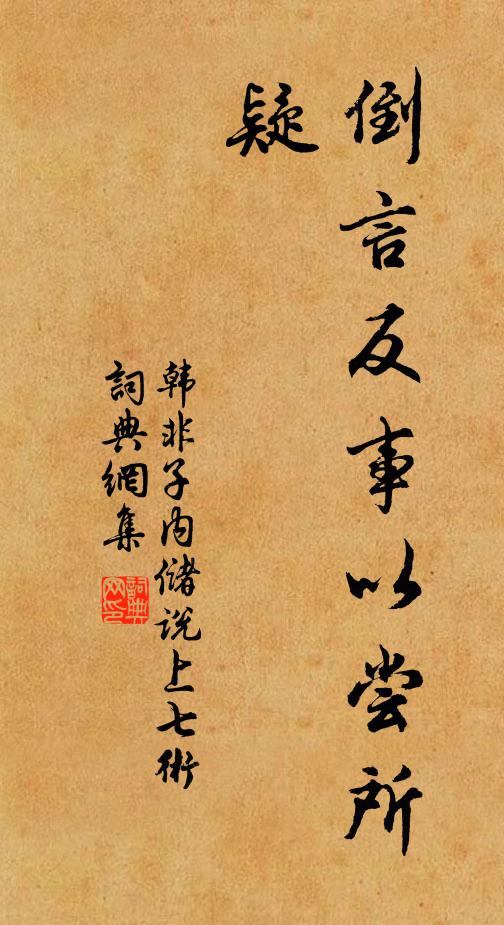 倒言反事以尝所
疑
韩非子内储说上七術
詞典網集
詞典
网印